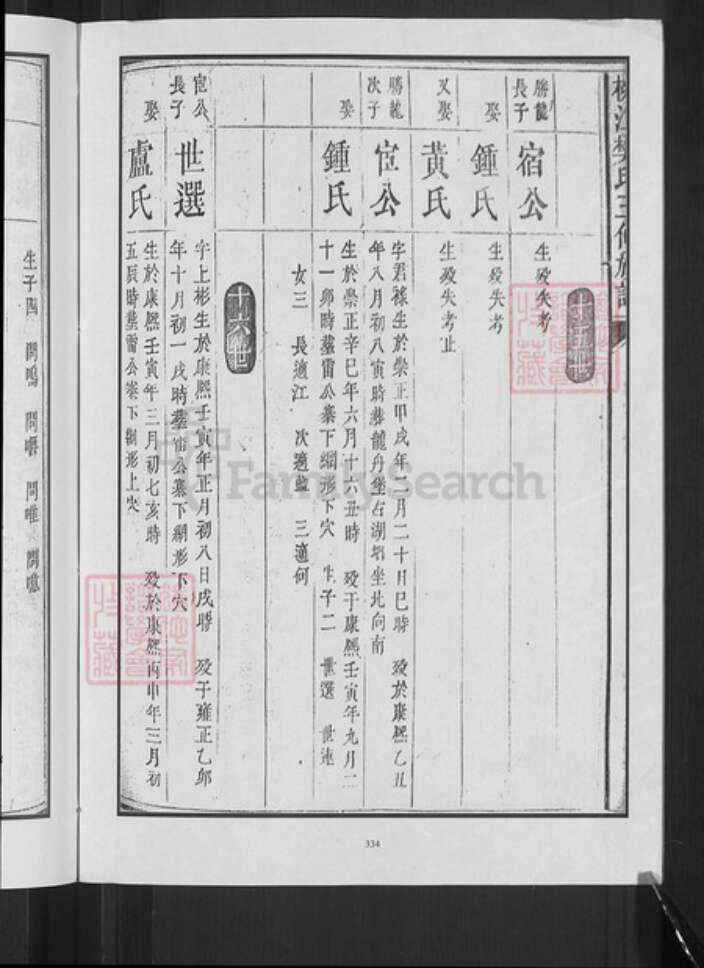 樊氏三修族譜
十五世
勝龍長子
宿公
生歿失考
娶
鍾氏
生歿失考
又娶
黃氏
生歿失考止
勝龍次子
宦公
字君祿生於崇正甲戌年二月二十日巳時 歿於康熙乙丑
年八月初八寅時葬龍丹堡右湖塘坐北向南
娶
鍾氏
生於崇正辛巳年六月十六丑時 歿于康熙壬寅年九月二
十一卯時葬雷公寨下網形下穴 生子二 世選 世連
女三 長適江 次適藍 三適何
十六世
宦公長子
世選
字上彬生於康熙壬寅年正月初八日戌時 歿于雍正乙卯
年十月初一戌時葬雷公寨下網形下穴
娶
盧氏
生於康熙壬寅年三月初七亥時 歿於康熙丙申年三月初
五辰時葬雷公寨下網形上穴
生子四 問鳴 問嚼 問唯 問噫
FamilySearch
334